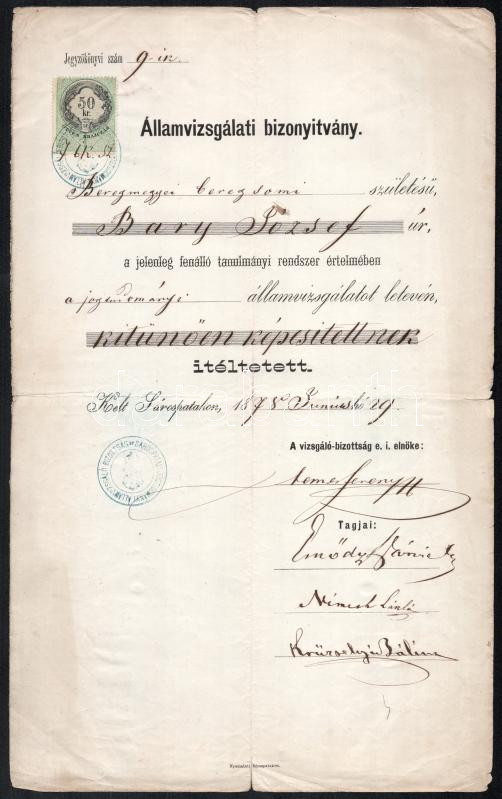 Jegyzőkönyvi szám 9-ik
50
kr.
Államvizsgálati bizonyitvány.
Beregmegyei beregsomi születésü,
Bary József úr,
a jelenleg fenálló tanulmányi rendszer értelmében
a jogtudományi államvizsgálatot letevén,
kitünően képesitettnek
itéltetett.
Kelt Sárospatakon, 1878 Junius hó 29.
A vizsgáló-bizottság e. i. elnöke:
Ferencz
Tagjai:
Emődy Dániel
Németh
Bálint
Nyomatott Sárospatakon.